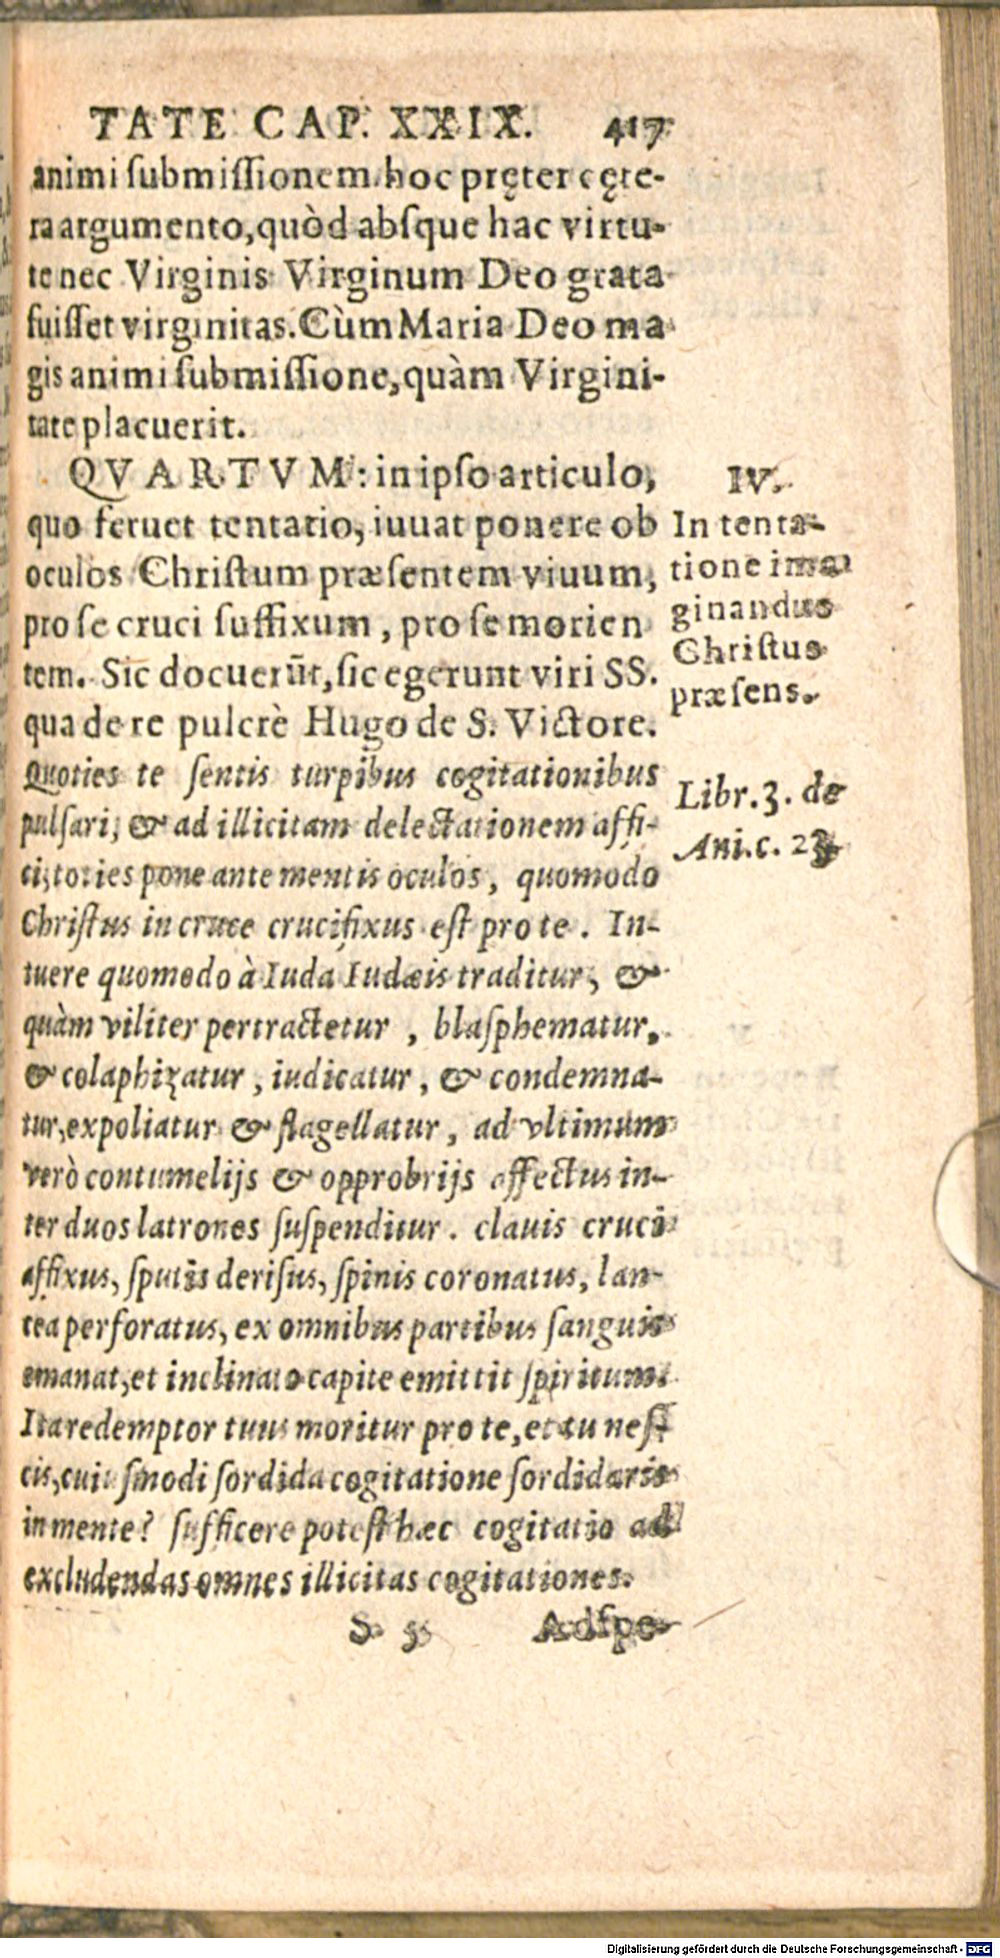 TATE CAP. XXIX. 417
animi submiſſionem hoc pręter cęte-
ra argumento, quòd abſque hac virtu-
te nec Virginis Virginum Deo grata
fuiſſet virginitas. Cùm Maria Deo ma
gis animi ſubmiſſione, quàm Virgini-
tate placuerit.
QVARTVM: in ipſo articulo,
quo feruet tentatio, iuuat ponere ob
oculos Chriſtum præſentem viuum,
pro ſe cruci ſuffixum, pro ſe morien
tem. Sic docuerūt, ſic egerunt viri SS.
qua de re pulcrè Hugo de S. Victore.
Quoties te ſentis turpibus cogitationibus
pulſari, & ad illicitam delectationem affi-
ci, toties pone ante mentis oculos, quomodo
Chriſtus in cruce crucifixus eſt pro te. In-
tuere quomodo à Iuda Iudæis traditur, &
quàm viliter pertractetur, blaſphematur,
& colaphizatur, iudicatur, & condemna-
tur, expoliatur & flagellatur, ad vltimum
verò contumelijs & opprobrijs affectus in-
ter duos latrones ſuſpenditur. clauis cruci
affixus, ſputis deriſus, ſpinis coronatus, lan-
cea perforatus, ex omnibus partibus ſanguis
emanat, et inclinato capite emittit ſpiritum.
Ita redemptor tuus moritur pro te, et tu neſ-
cis, cuiuſmodi ſordida cogitatione ſordidaris
in mente? ſufficere poteſt hæc cogitatio ad
excludendas omnes illicitas cogitationes.
S 5 Adſpe-
IV.
In tenta-
tione ima
ginandus
Chriſtus
præſens.
Libr. 3. de
Ani. c.
Digitalisierung gefördert durch die Deutsche Forschungsgemeinschaft - DFG